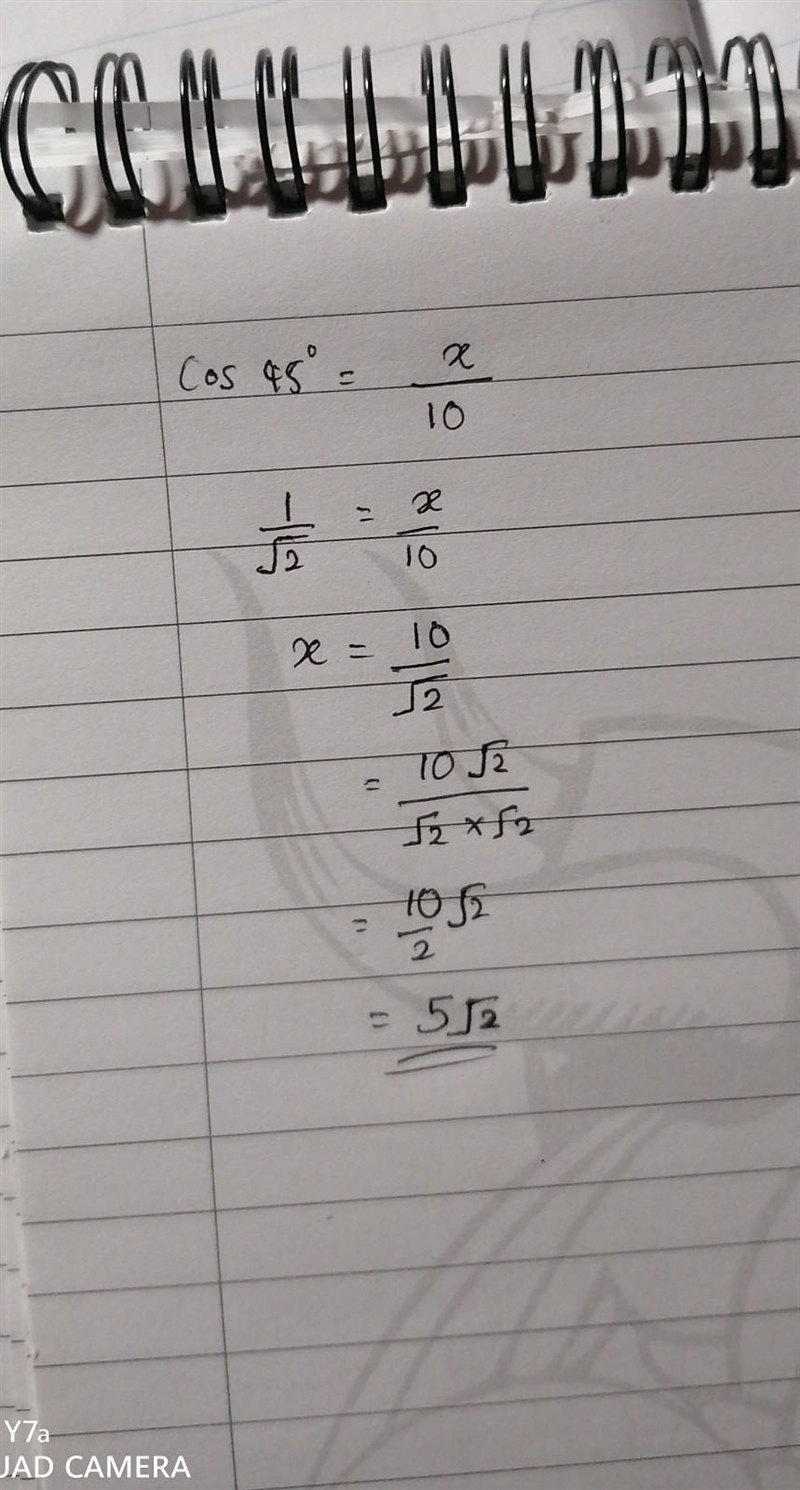 Cos 45° = x/10
1/√2 = x/10
x = 10/√2
= 10√2/√2 × √2
= 10/2 √2
= 5√2
Y7a
UAD CAMERA